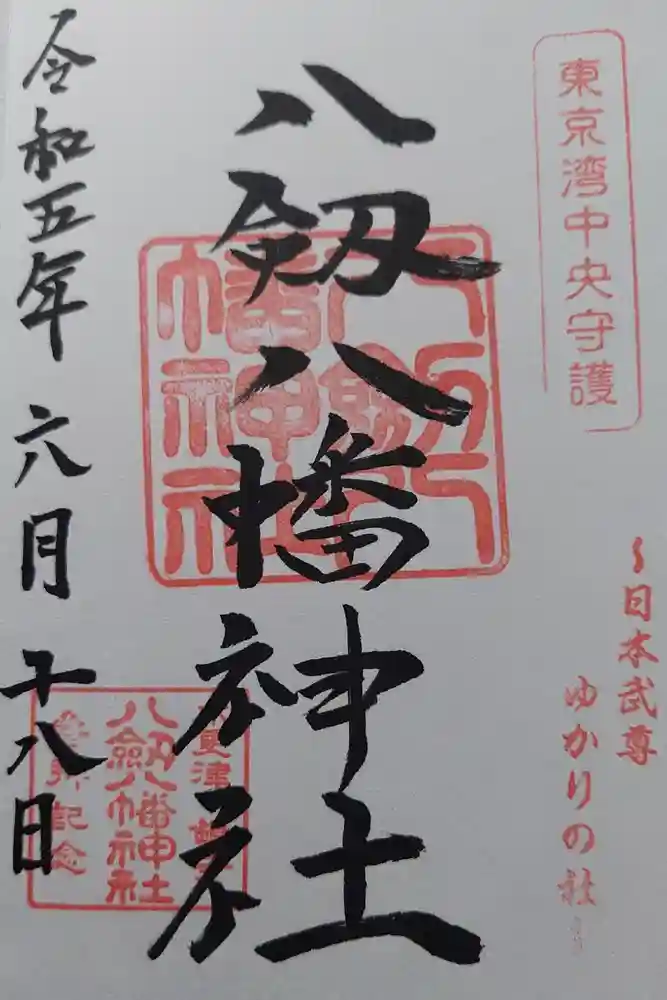 東京湾中央守護
～日本武尊
ゆかりの社～
八剱八幡神社
八剱八幡神社
八剱八幡神社
参拝記念
令和五年六月十八日